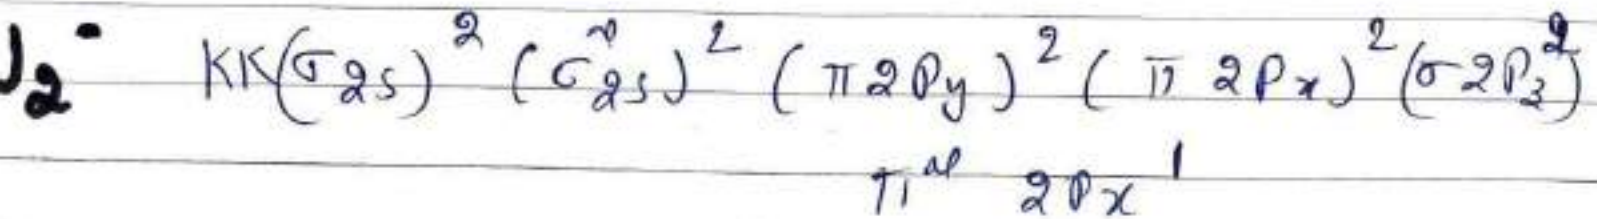 J₂⁻ KK(σ2s)² (σ*2s)² (π2Py)² (π2Px)² (σ2P₃²)
π* 2Px¹